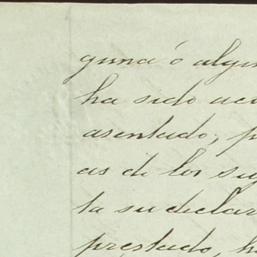 guna ó algun
ha sido acu
asentado, p
as de los sig
ta su declar
prestado, ha